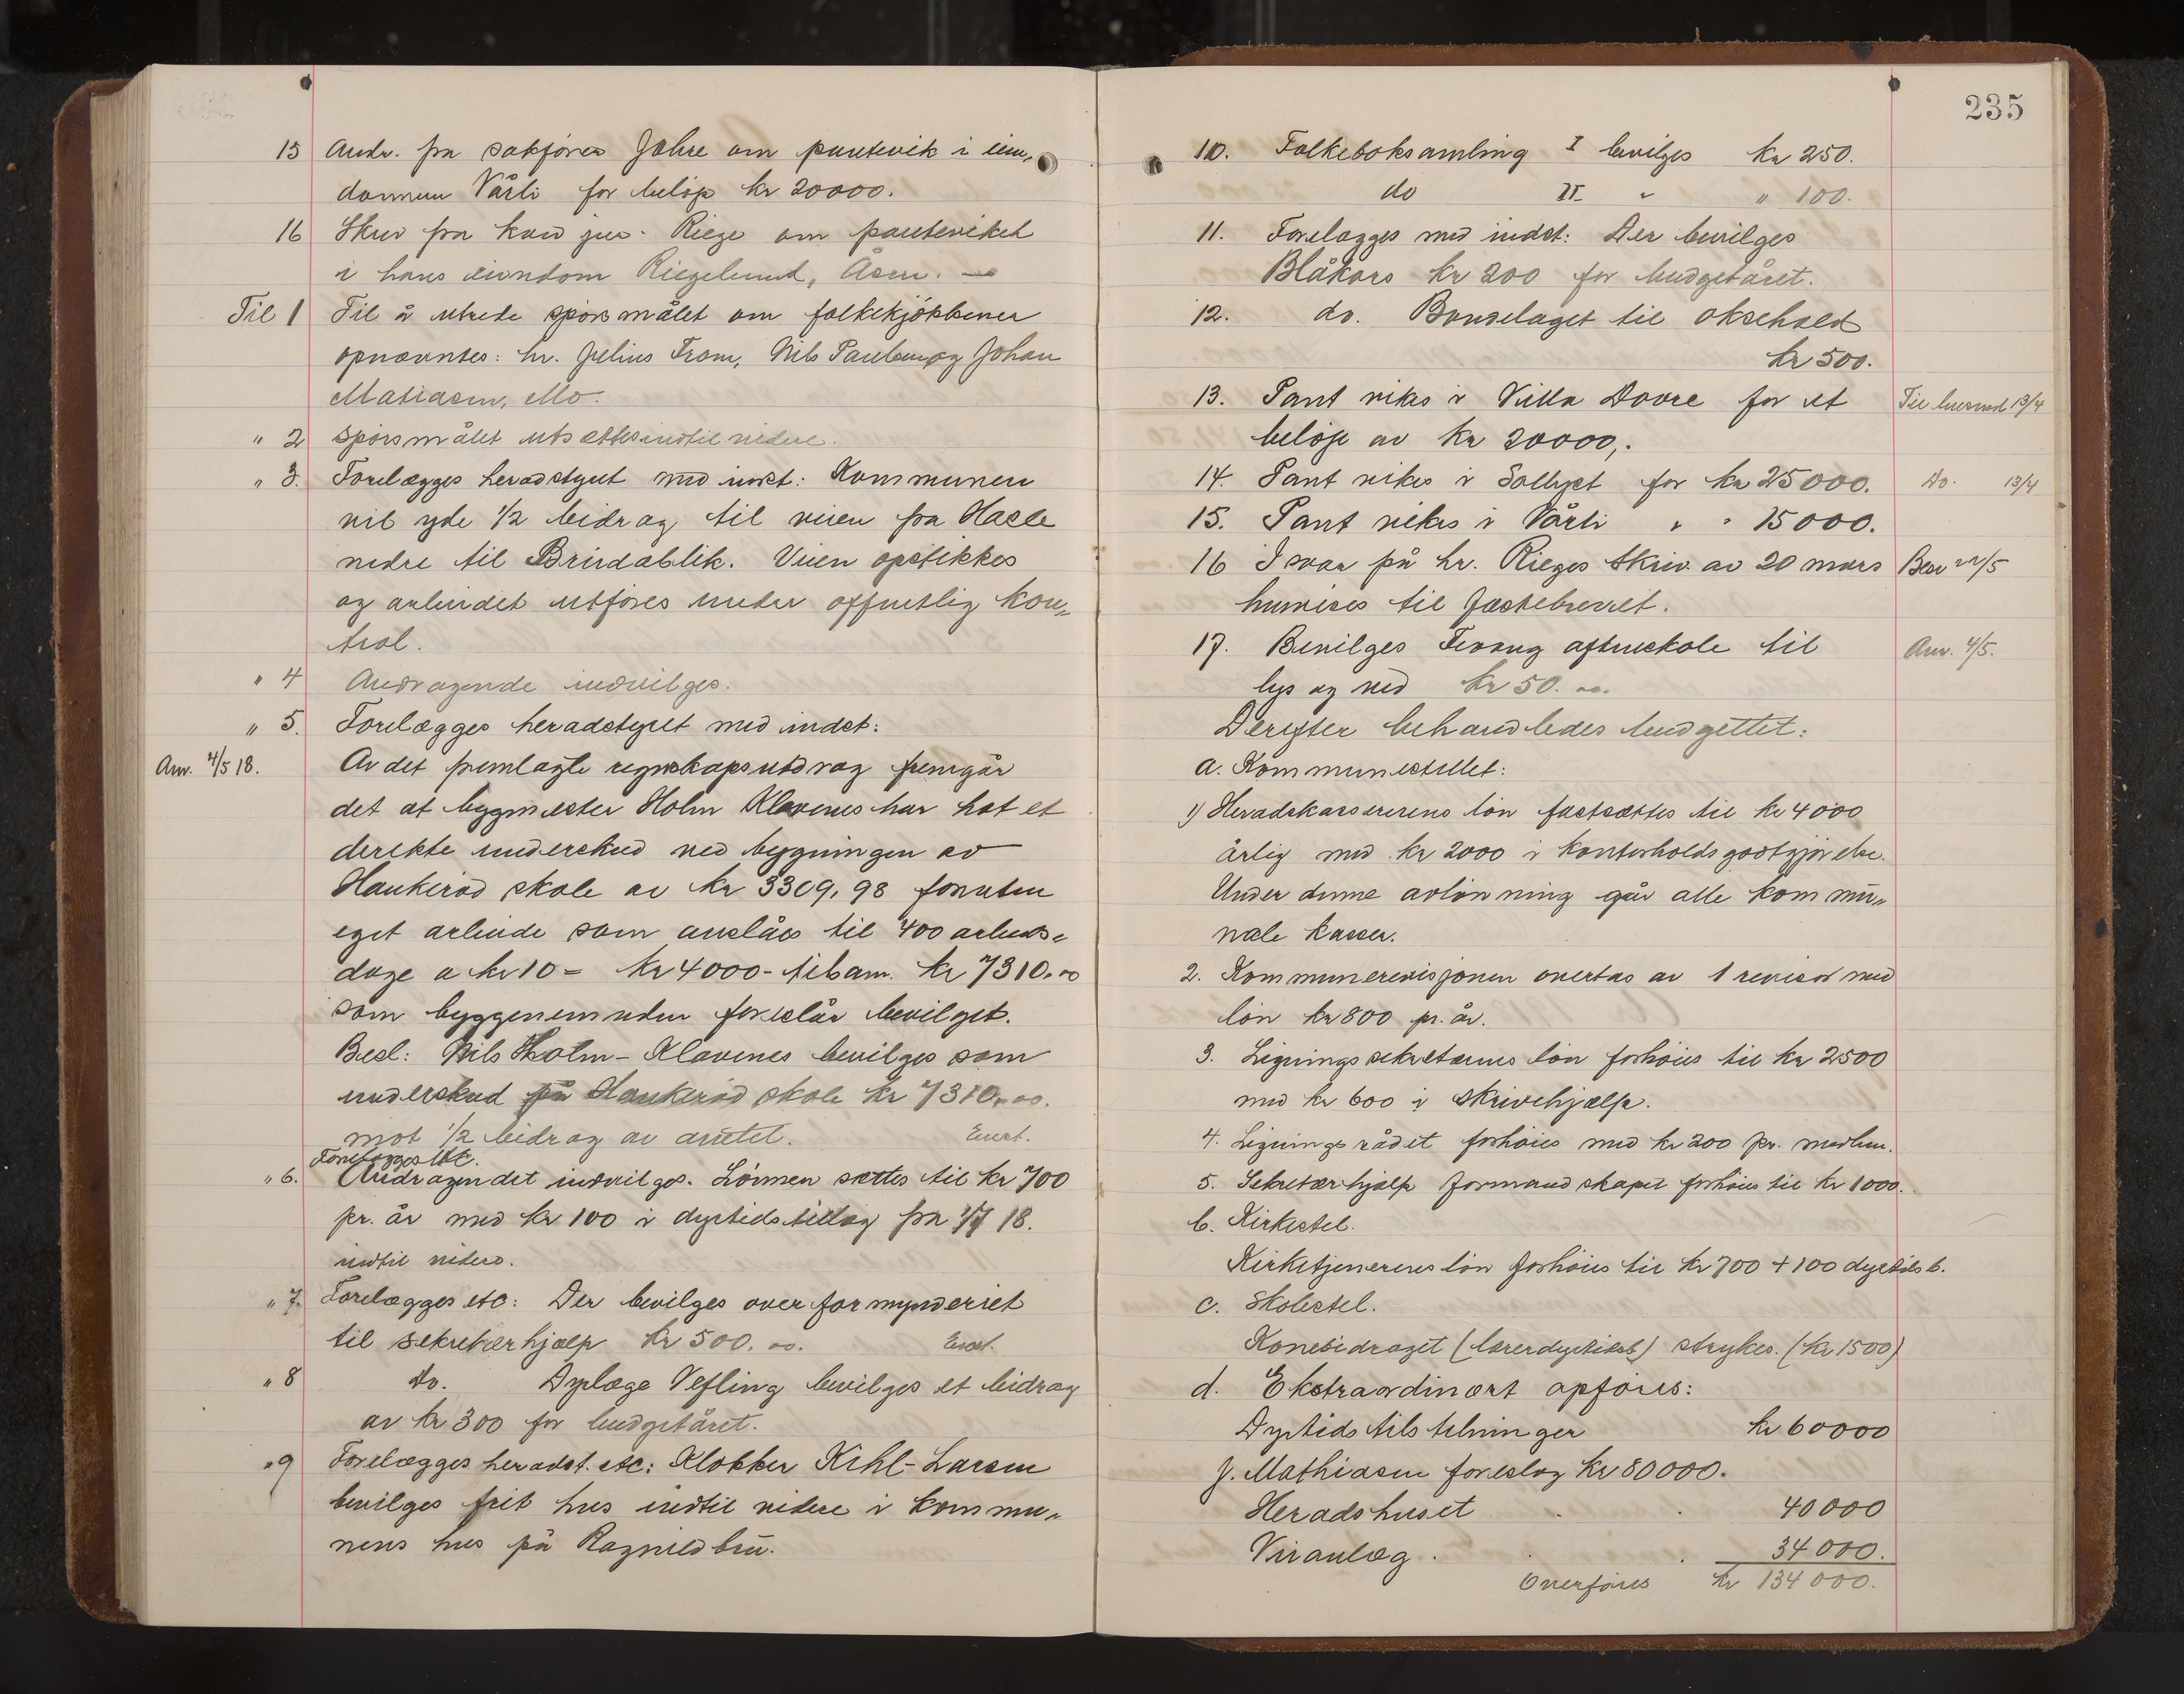 15 Andr. fra sakfører Jahre om pantevik i eien„
dommen Vårli for beløp kr 20000.
16 Skriv fra kand jur. Riege om panteviket
i hans eiendom Riegelund, Åsen. —
Til 1 Til å utrede spørsmålet om folkekjøkkener
opnævntes: hr. Julius From, Nils Paulsen og Johan
Matiasen, Mo.
" 2 Spørsmålet utsættes indtil videre.
" 3. Forelægges heradstyret med indst: Kommunen
vil yde 1/2 bidrag til veien fra Hasle
nedre til Breidablik. Veien opstikkes
og arbeidet utføres under offentlig kon„
trol.
" 4 Andragende indvilges.
" 5. Forelægges heradstyret med indst:
Anv. 4/5 18. Av det fremlagte regnskapsutdrag fremgår
det at bygmester Holm Klavenes har hat et
direkte underskud ved bygningen av
Haukerød skole av kr 3309,98 foruten
eget arbeide som anslåes til 400 arbeids„
dage a kr 10 = kr 4000 - tilsam. kr 7310.00
som byggenemnden foreslår bevilget.
Besl: Nils Holm-Klavenes bevilges som
underskud på Haukerød skole kr 7310.00.
mot 1/2 bidrag av amtet. Enst.
Forelægges etc.
" 6. Andragendet indvilges. Lønnen sættes til kr 700
pr. år med kr 100 i dyrtidstillæg fra 1/7 18.
indtil videre.
" 7. Forelægges etc: Der bevilges overformynderiet
til sekretærhjælp kr 500.00. Enst.
" 8 do. Dyrlæge Vefling bevilges et bidrag
av kr 300 for budgetåret.
" 9 Forelægges heradst. etc: Klokker Kihl-Larsen
bevilges frit hus indtil videre i kommu„
nens hus på Ragnildbru.
235
10. Folkeboksamling I bevilges kr 250.
do II " " 100.
11. Forelægges med indst: Der bevilges
Blåkors kr 200 for budgetåret.
12. do. Bondelaget til oksehold
kr 500.
13. Pant vikes i Villa Dovre for et Til herred 13/4
beløp av kr 20000,.
14. Pant vikes i Solhest for kr 25000. do. 13/4
15. Pant vikes i Vårli " " 15000.
16 I svar på hr. Rieges skriv. av 20 mars Besv 22/5
henvises til fæstebrevet.
17. Bevilges Fevang aftenskole til Anv. 4/5.
lys og ved kr 50.00.
Derefter behandledes budgettet:
a. Kommunestellet:
1) Heradskassererens løn fastsættes til kr 4000
årlig med kr 2000 i kontorholdsgodtgjørelse.
Under denne avlønning går alle kommu„
nale kasser.
2. Kommunerevisjonen overtas av 1 revisor med
løn kr 800 pr. år.
3. Ligningssekretærens løn forhøies til kr 2500
med kr 600 i skrivehjælp.
4. Ligningsrådet forhøies med kr 200 pr. medlem.
5. Sekretærhjælp formandskapet forhøies til kr 1000.
b. Kirkestel.
Kirketjenerens løn forhøies til kr 700 + 100 dyrtids b.
c. Skolestel.
Konebidraget (lærerdyrtidsb) strykes. (kr 1500)
d. Ekstraordinært opføres:
Dyrtidstilstelninger kr 60000
J. Mathiasen foreslog kr 80000.
Heradshuset 40000
Veianlæg 34000.
Overføres kr 134000.